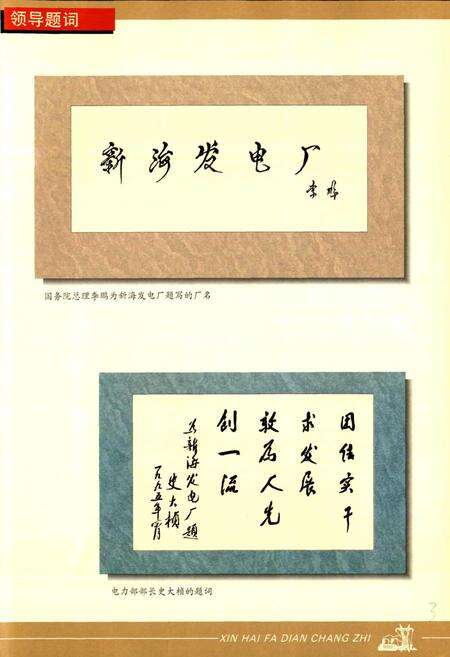 领导题词
新海发电厂
李鹏
国务院总理李鹏为新海发电厂题写的厂名
团结实干
求发展
敢为人先
创一流
为新海发电厂题
史大桢
一九九五年
电力部部长史大桢的题词
3
XIN HAI FA DIAN CHANG ZHI